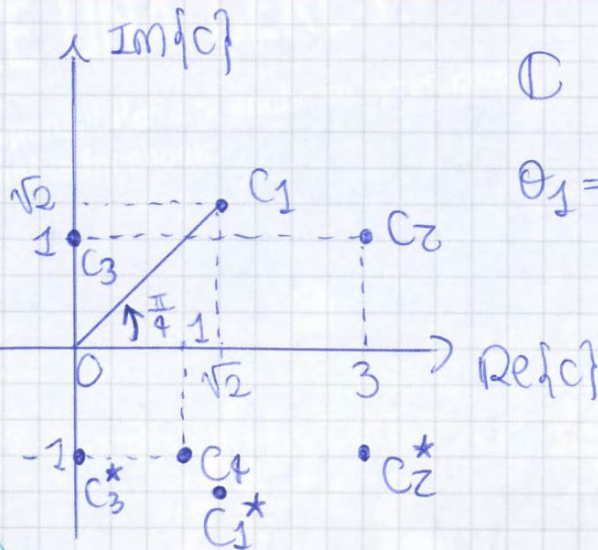 Im{C}
ℂ
θ₁ =
√2
C1
1
C2
C3
π/4
1
0
√2
3
Re{C}
-1
C3*
C4
C2*
C1*